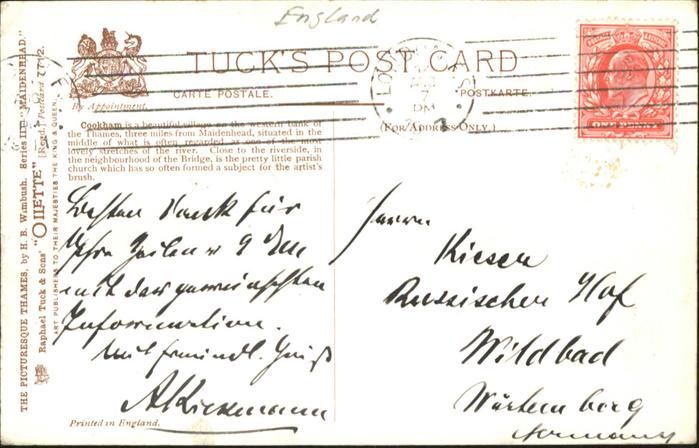 England
TUCK'S POST CARD
CARTE POSTALE.
POSTKARTE.
By Appointment.
(FOR ADDRESS ONLY.)
Cookham is a beautiful village on the western bank of
the Thames, three miles from Maidenhead, situated in the
middle of what is often regarded as one of the most
lovely stretches of the river. Close to the riverside, in
the neighbourhood of the Bridge, is the pretty little parish
church which has so often formed a subject for the artist's
brush.
THE PICTURESQUE THAMES, by H. B. Wimbush. Series III "MAIDENHEAD."
Raphael Tuck & Sons' "OILETTE" [Regd.] Postcard 7712.
ART PUBLISHERS TO THEIR MAJESTIES THE KING & QUEEN.
Besten Dank für
Ihre Zeilen v 9
mit der gewünschten
Information.
Mit freundl. Gruß
Printed in England.
Herrn
Russischer Hof
Wildbad
Würtemberg
Germany
ONE PENNY